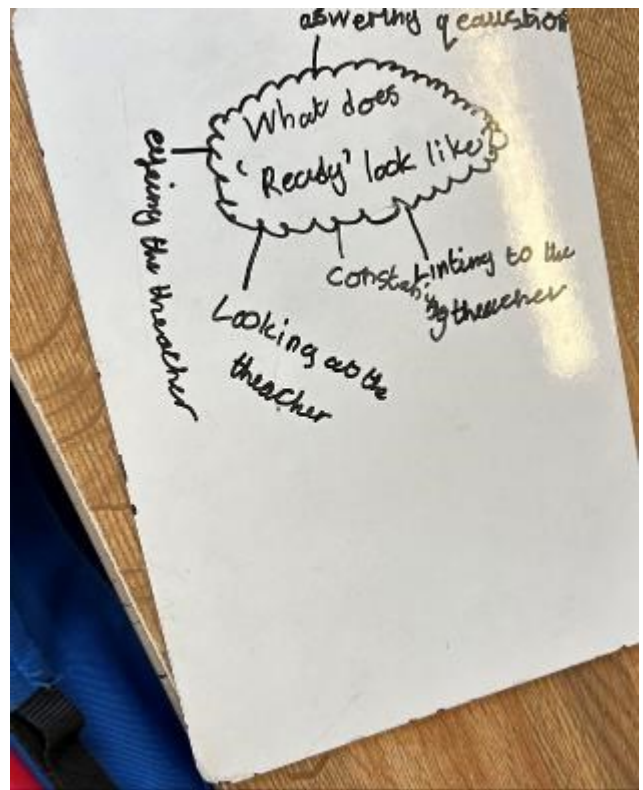 aswering qeaustion
What does
'Ready' look like
eyeing the threacher
Looking at the
theacher
Linting to the
theacher